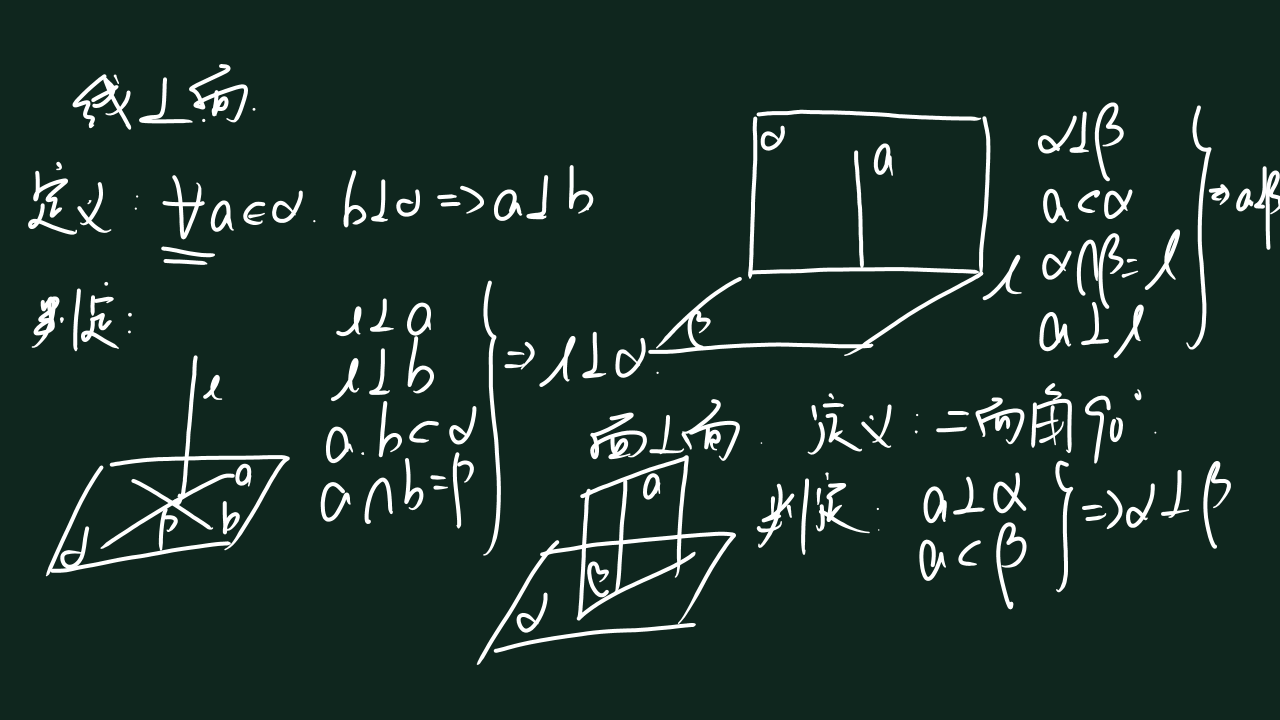 线⊥面.
定义: ∀a∈α. b⊥α => a⊥b
判定:
l⊥a
l⊥b
a.b⊂α
a∩b=p
=> l⊥α.
l
a
p
b
α
α
a
l
β
α⊥β
a⊂α
α∩β=l
a⊥l
=> a⊥β
面⊥面. 定义: 二面角90°.
判定: a⊥α
a⊂β
=> α⊥β
a
β
α